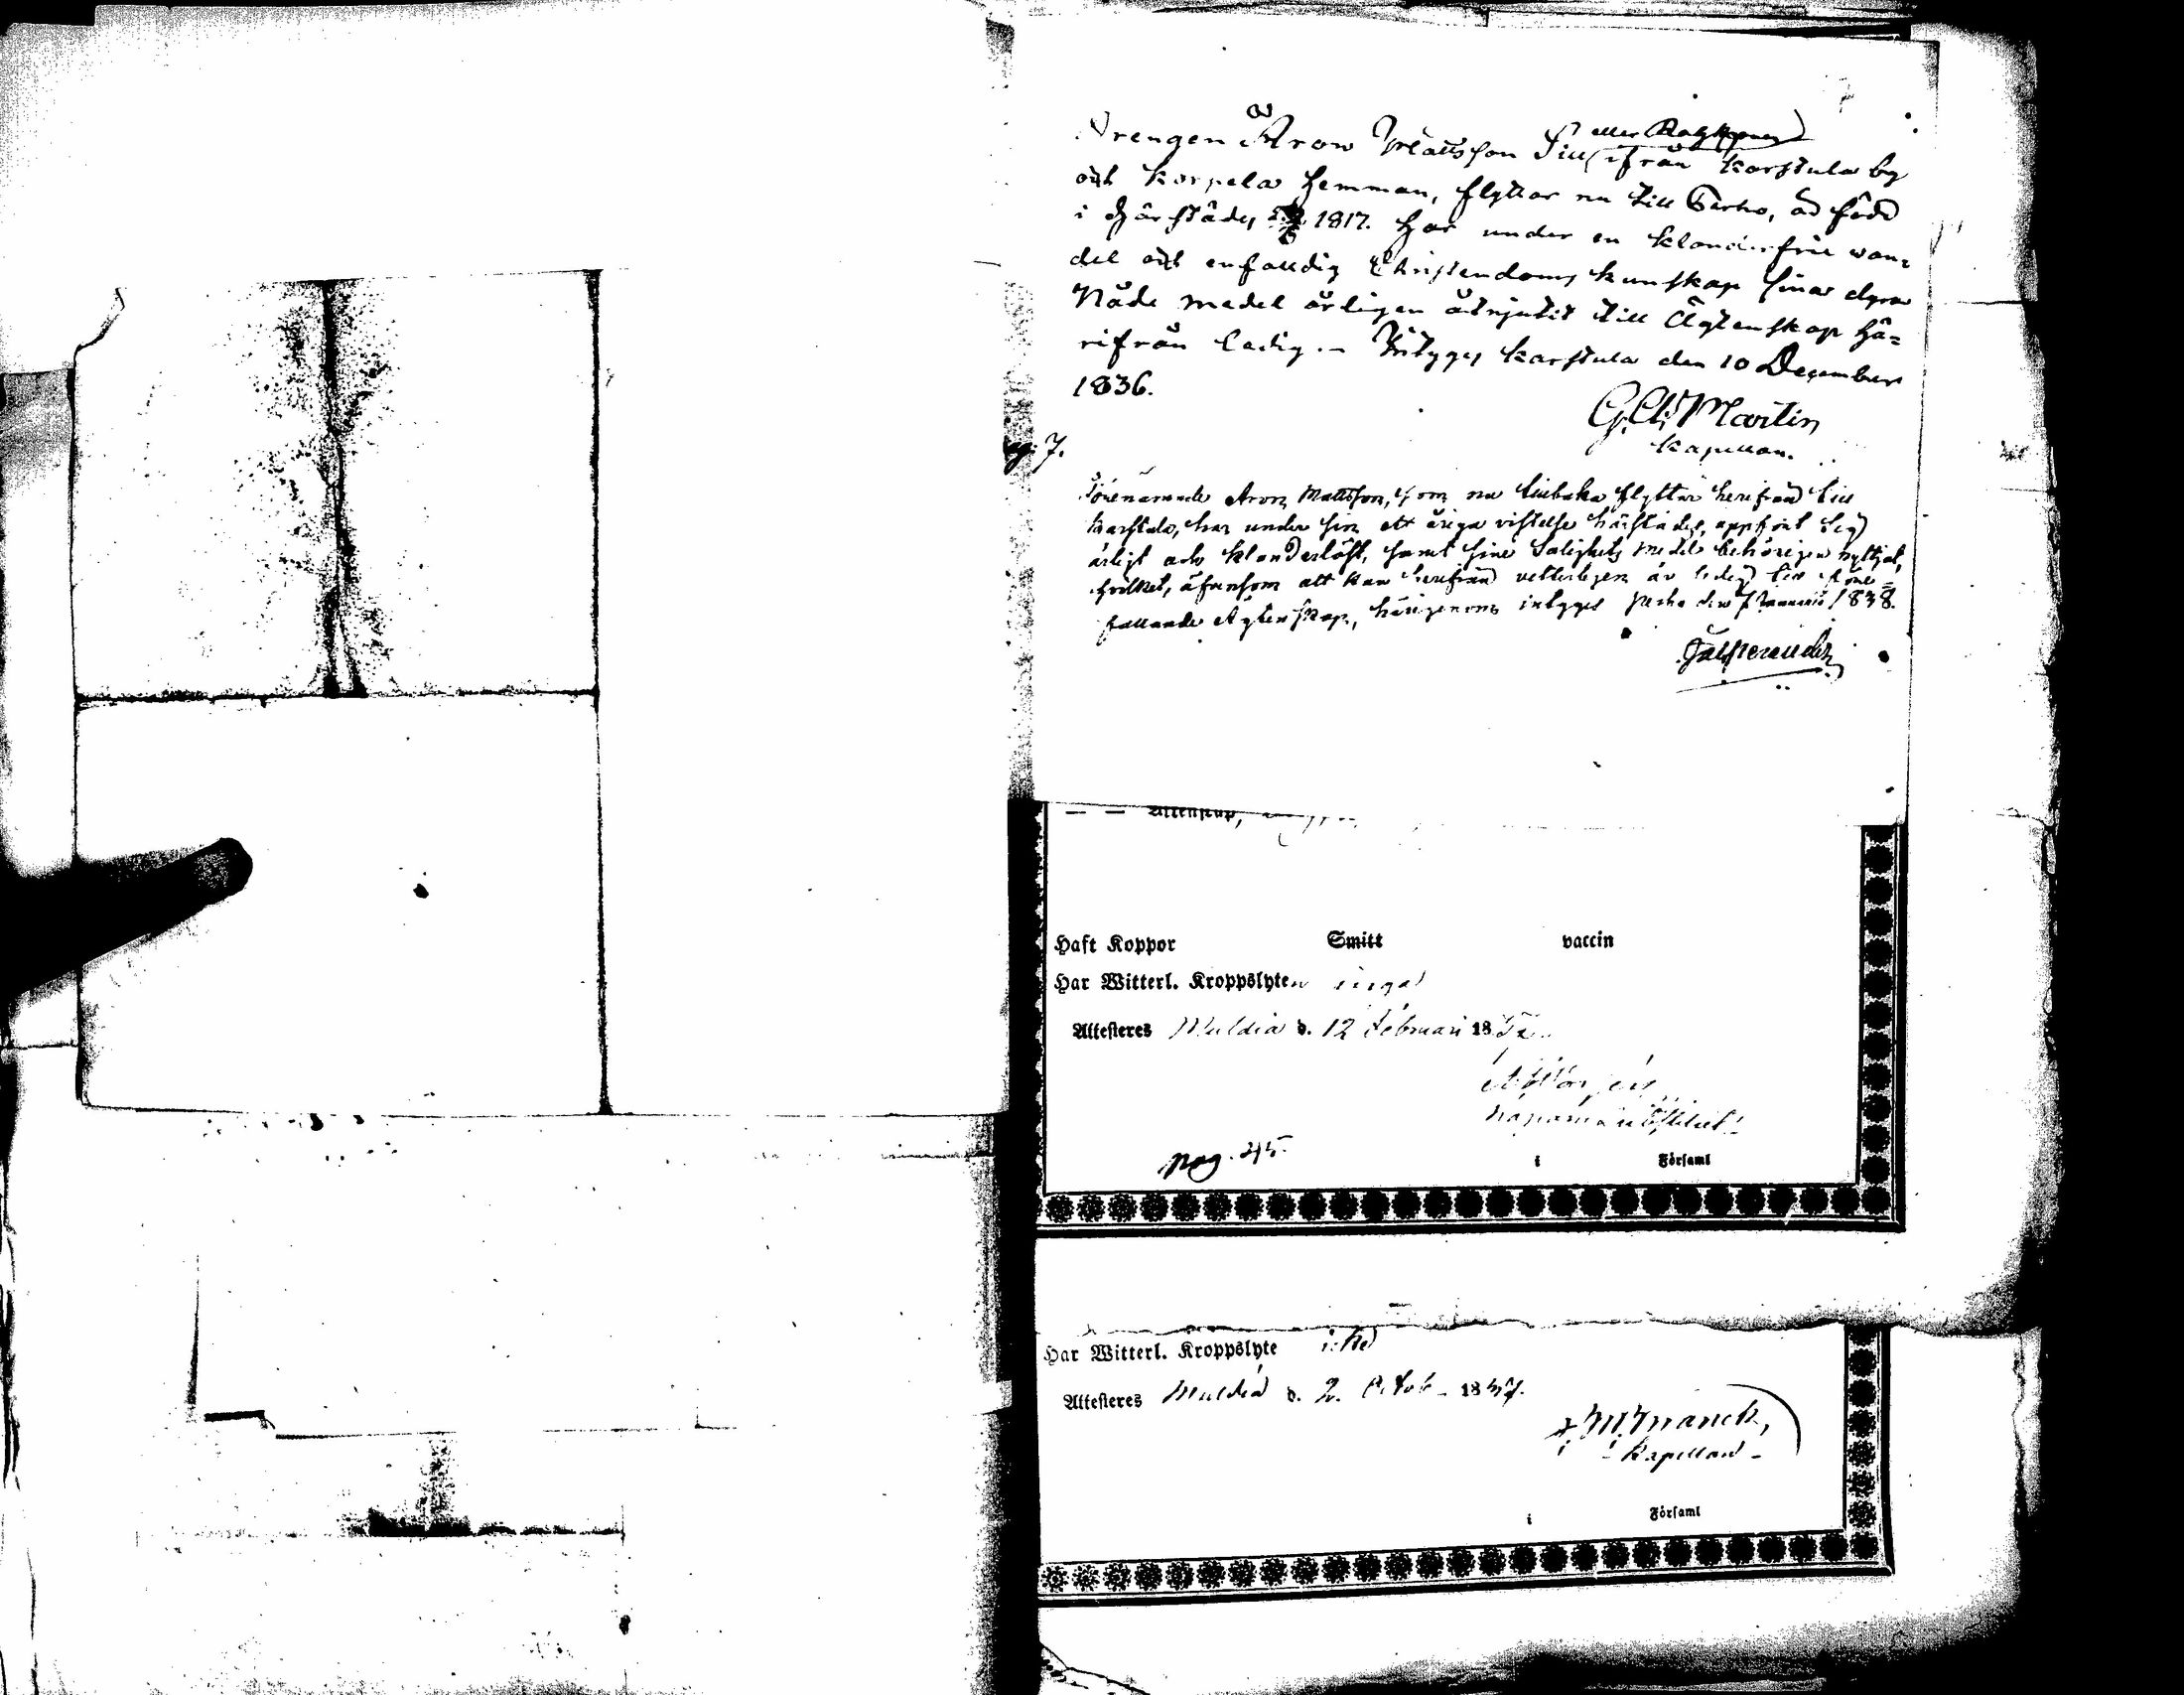 Drengen Aron Mattsson Sill (eller
ifrån Karstula by
och Korpela Hemman, flyttar nu till Perho, är född
i Härstädes 1817. Har under en klanderfrie wan-
del och enfaldig Christendoms kunskap sina dyra
Nåde medel årligen åtnjutit till Ägtenskap hä-
rifrån ledig. – Intygas Karstula den 10 December
1836.
Martin
Kapellan.
pag. 7.
Förenämnde Aron Mattsson, som nu tillbaka flyttar herifrån till
Karstula, har under sin ett åriga vistelse härstädes, uppfört sig
ärligt och klanderlöst, samt sine Salighets medel behörigen nyttjat,
hvilket, äfvensom att han herifrån vetterligen är ledig till före-
fallande Ägtenskap, härigenom intygas Perho den 7 Januarii 1838.
— — Äktenskap,
Haft Koppor Smitt vaccin
Har Witterl. Kroppslyten inga
Attesteres Muldia d. 12 Februari 18
pag. 245.
i Församl
Har Witterl. Kroppslyte icke
Attesteres Muldia d. 2. Octob. 1847.
Kapellan
i Församl